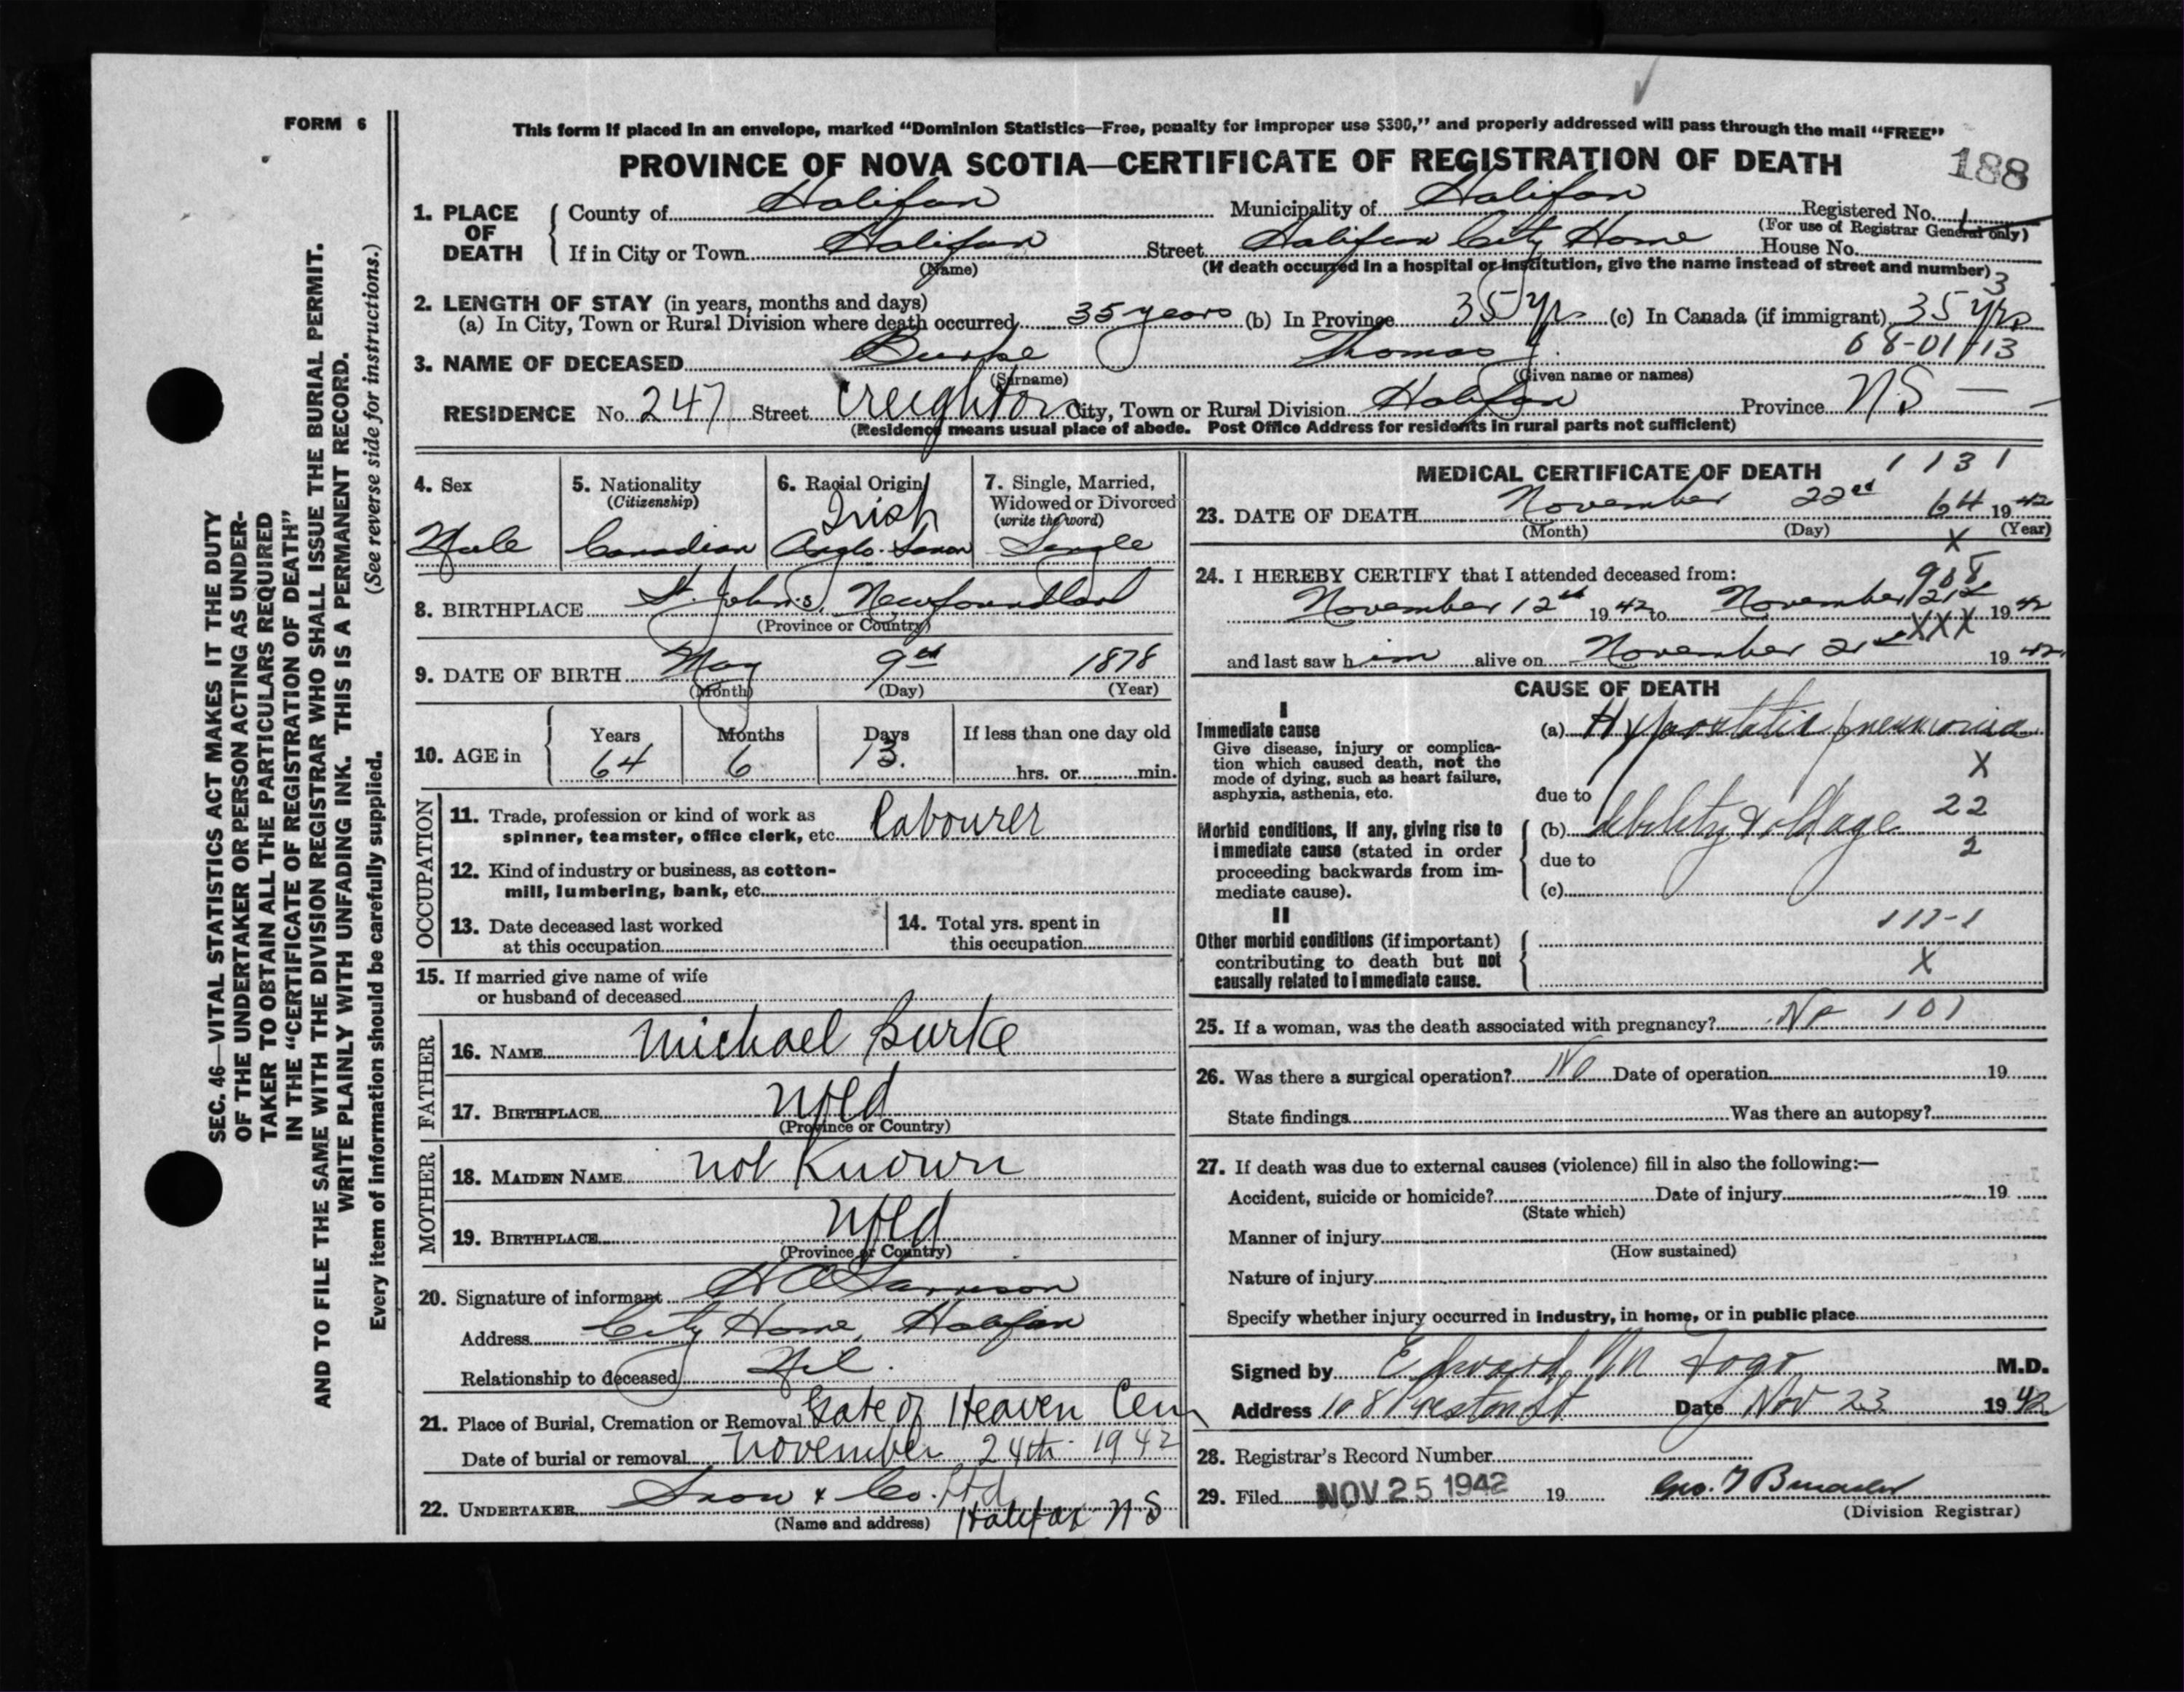 FORM 6
This form if placed in an envelope, marked “Dominion Statistics—Free, penalty for improper use $300,” and properly addressed will pass through the mail “FREE”
PROVINCE OF NOVA SCOTIA—CERTIFICATE OF REGISTRATION OF DEATH
188
1. PLACE OF DEATH { County of Halifax Municipality of Halifax Registered No.
(For use of Registrar General only)
If in City or Town Halifax Street Halifax City Home House No.
(Name) (If death occurred in a hospital or institution, give the name instead of street and number)
3
2. LENGTH OF STAY (in years, months and days)
(a) In City, Town or Rural Division where death occurred 35 years (b) In Province 35 yrs (c) In Canada (if immigrant) 35 yrs
3. NAME OF DECEASED Burke Thomas J. 68-01/13
(Surname) (Given name or names)
RESIDENCE No. 247 Street Creighton City, Town or Rural Division Halifax Province N.S —
(Residence means usual place of abode. Post Office Address for residents in rural parts not sufficient)
4. Sex
Male
5. Nationality
(Citizenship)
Canadian
6. Racial Origin
Irish
Anglo-Saxon
7. Single, Married,
Widowed or Divorced
(write the word)
Single
8. BIRTHPLACE St. John's, Newfoundland
(Province or Country)
9. DATE OF BIRTH May 9th 1878
(Month) (Day) (Year)
10. AGE in { Years Months Days If less than one day old
64 6 13. hrs. or min.
OCCUPATION
11. Trade, profession or kind of work as
spinner, teamster, office clerk, etc. Labourer
12. Kind of industry or business, as cotton-
mill, lumbering, bank, etc.
13. Date deceased last worked
at this occupation
14. Total yrs. spent in
this occupation
15. If married give name of wife
or husband of deceased
FATHER
16. NAME Michael Burke
17. BIRTHPLACE Nfld
(Province or Country)
MOTHER
18. MAIDEN NAME not Known
19. BIRTHPLACE Nfld
(Province or Country)
20. Signature of informant
Address City Home, Halifax
Relationship to deceased Nil.
21. Place of Burial, Cremation or Removal Gate of Heaven Cem
Date of burial or removal November 24th 1942
22. UNDERTAKER Snow & Co. Ltd
(Name and address) Halifax NS
MEDICAL CERTIFICATE OF DEATH 1131
23. DATE OF DEATH November 22nd 64 1942
(Month) (Day) (Year)
X
24. I HEREBY CERTIFY that I attended deceased from:
908
November 12th 1942 to November 21st 1942
XXX
and last saw him alive on November 21st 1942
CAUSE OF DEATH
I
Immediate cause
Give disease, injury or complica-
tion which caused death, not the
mode of dying, such as heart failure,
asphyxia, asthenia, etc.
(a) Hypostatic pneumonia
X
due to
22
Morbid conditions, if any, giving rise to
immediate cause (stated in order
proceeding backwards from im-
mediate cause).
(b) debility & old age
2
due to
(c)
II
Other morbid conditions (if important)
contributing to death but not
causally related to immediate cause.
117-1
X
25. If a woman, was the death associated with pregnancy? No 101
26. Was there a surgical operation? No Date of operation 19
State findings Was there an autopsy?
27. If death was due to external causes (violence) fill in also the following:—
Accident, suicide or homicide? Date of injury 19
(State which)
Manner of injury
(How sustained)
Nature of injury
Specify whether injury occurred in industry, in home, or in public place
Signed by Edward M Fogo M.D.
Address 108 Preston St Date Nov 23 1942
28. Registrar's Record Number
29. Filed NOV 25 1942 19 Geo. 
(Division Registrar)
SEC. 46—VITAL STATISTICS ACT MAKES IT THE DUTY
OF THE UNDERTAKER OR PERSON ACTING AS UNDER-
TAKER TO OBTAIN ALL THE PARTICULARS REQUIRED
IN THE “CERTIFICATE OF REGISTRATION OF DEATH”
AND TO FILE THE SAME WITH THE DIVISION REGISTRAR WHO SHALL ISSUE THE BURIAL PERMIT.
WRITE PLAINLY WITH UNFADING INK. THIS IS A PERMANENT RECORD.
Every item of information should be carefully supplied. (See reverse side for instructions.)